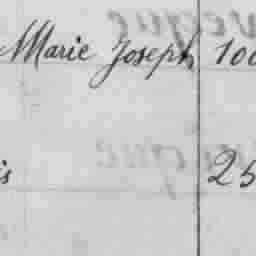 Marie Joseph 100
is 25